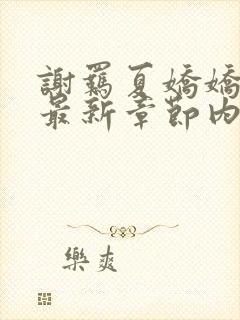 謝羈夏嬌嬌
最新章節內
樂爽